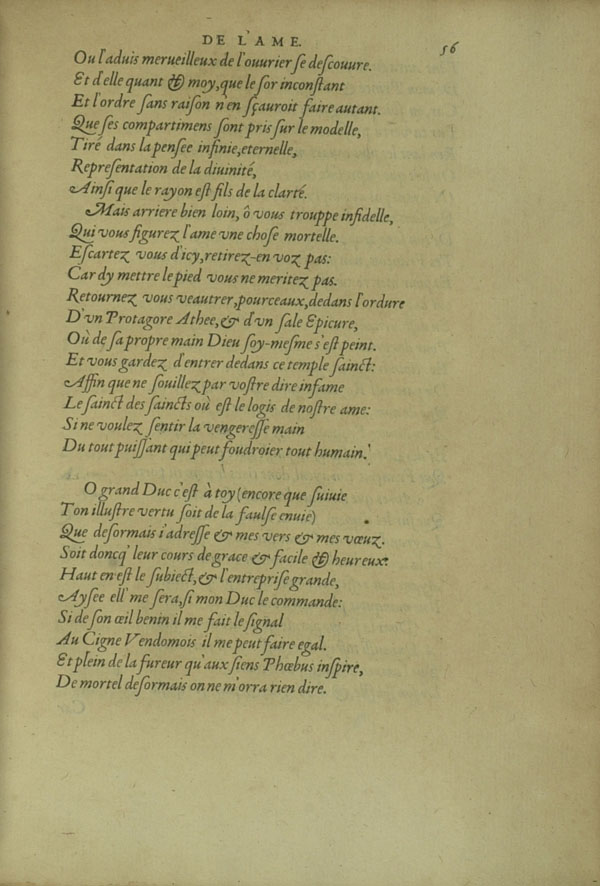 DE L'AME.
56
Ou l'aduis merueilleux de l'ouurier se descouure.
Et d'elle quant & moy, que le sor inconstant
Et l'ordre sans raison n'en sçauroit faire autant.
Que ses compartimens sont pris sur le modelle,
Tiré dans la pensee infinie, eternelle,
Representation de la diuinité,
Ainsi que le rayon est fils de la clarté.
Mais arriere bien loin, ô vous trouppe infidelle,
Qui vous figurez l'ame vne chose mortelle.
Escartez vous d'icy, retirez-en voz pas:
Car dy mettre le pied vous ne meritez pas.
Retournez vous veautrer, pourceaux, dedans l'ordure
D'vn Protagore Athee, & d'vn sale Epicure,
Où de sa propre main Dieu soy-mesme s'est peint.
Et vous gardez d'entrer dedans ce temple sainct:
Affin que ne souillez par vostre dire infame
Le sainct des saincts où est le logis de nostre ame:
Si ne voulez sentir la vengeresse main
Du tout puissant qui peut foudroier tout humain.
O grand Duc c'est à toy (encore que suiuie
Ton illustre vertu soit de la faulse enuie)
Que desormais i'adresse & mes vers & mes vœuz.
Soit doncq' leur cours de grace & facile & heureux:
Haut en est le subiect, & l'entreprise grande,
Aysee ell' me sera, si mon Duc le commande:
Si de son œil benin il me fait le signal
Au Cigne Vendomois il me peut faire egal.
Et plein de la fureur qu'aux siens Phœbus inspire,
De mortel desormais on ne m'orra rien dire.